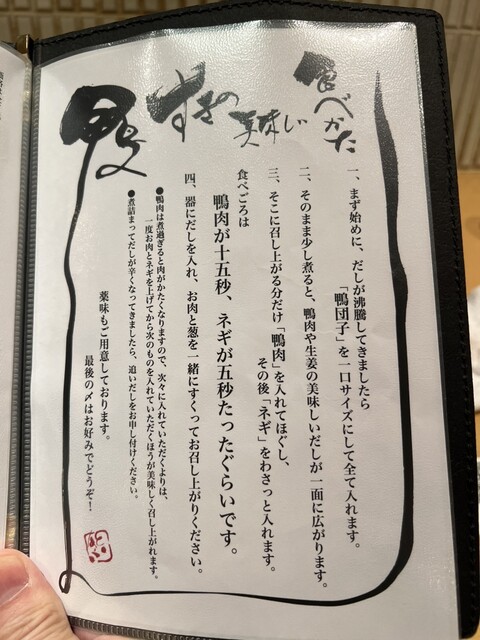 鴨すきの美味しい食べかた
一、まず始めに、だしが沸騰してきましたら
「鴨団子」を一口サイズにして全て入れます。
二、そのまま少し煮ると、鴨肉や生姜の美味しいだしが一面に広がります。
三、そこに召し上がる分だけ「鴨肉」を入れてほぐし、
その後「ネギ」をわさっと入れます。
食べごろは
鴨肉が十五秒、ネギが五秒たったぐらいです。
四、器にだしを入れ、お肉と葱を一緒にすくってお召し上がりください。
●鴨肉は煮過ぎると肉がかたくなりますので、次々に入れていただくよりは、
一度お肉とネギを上げてから次のものを入れていただくほうが美味しく召し上がれます。
●煮詰まってだしが辛くなってきましたら、追いだしをお申し付けください。
薬味もご用意しております。
最後の〆はお好みでどうぞ！